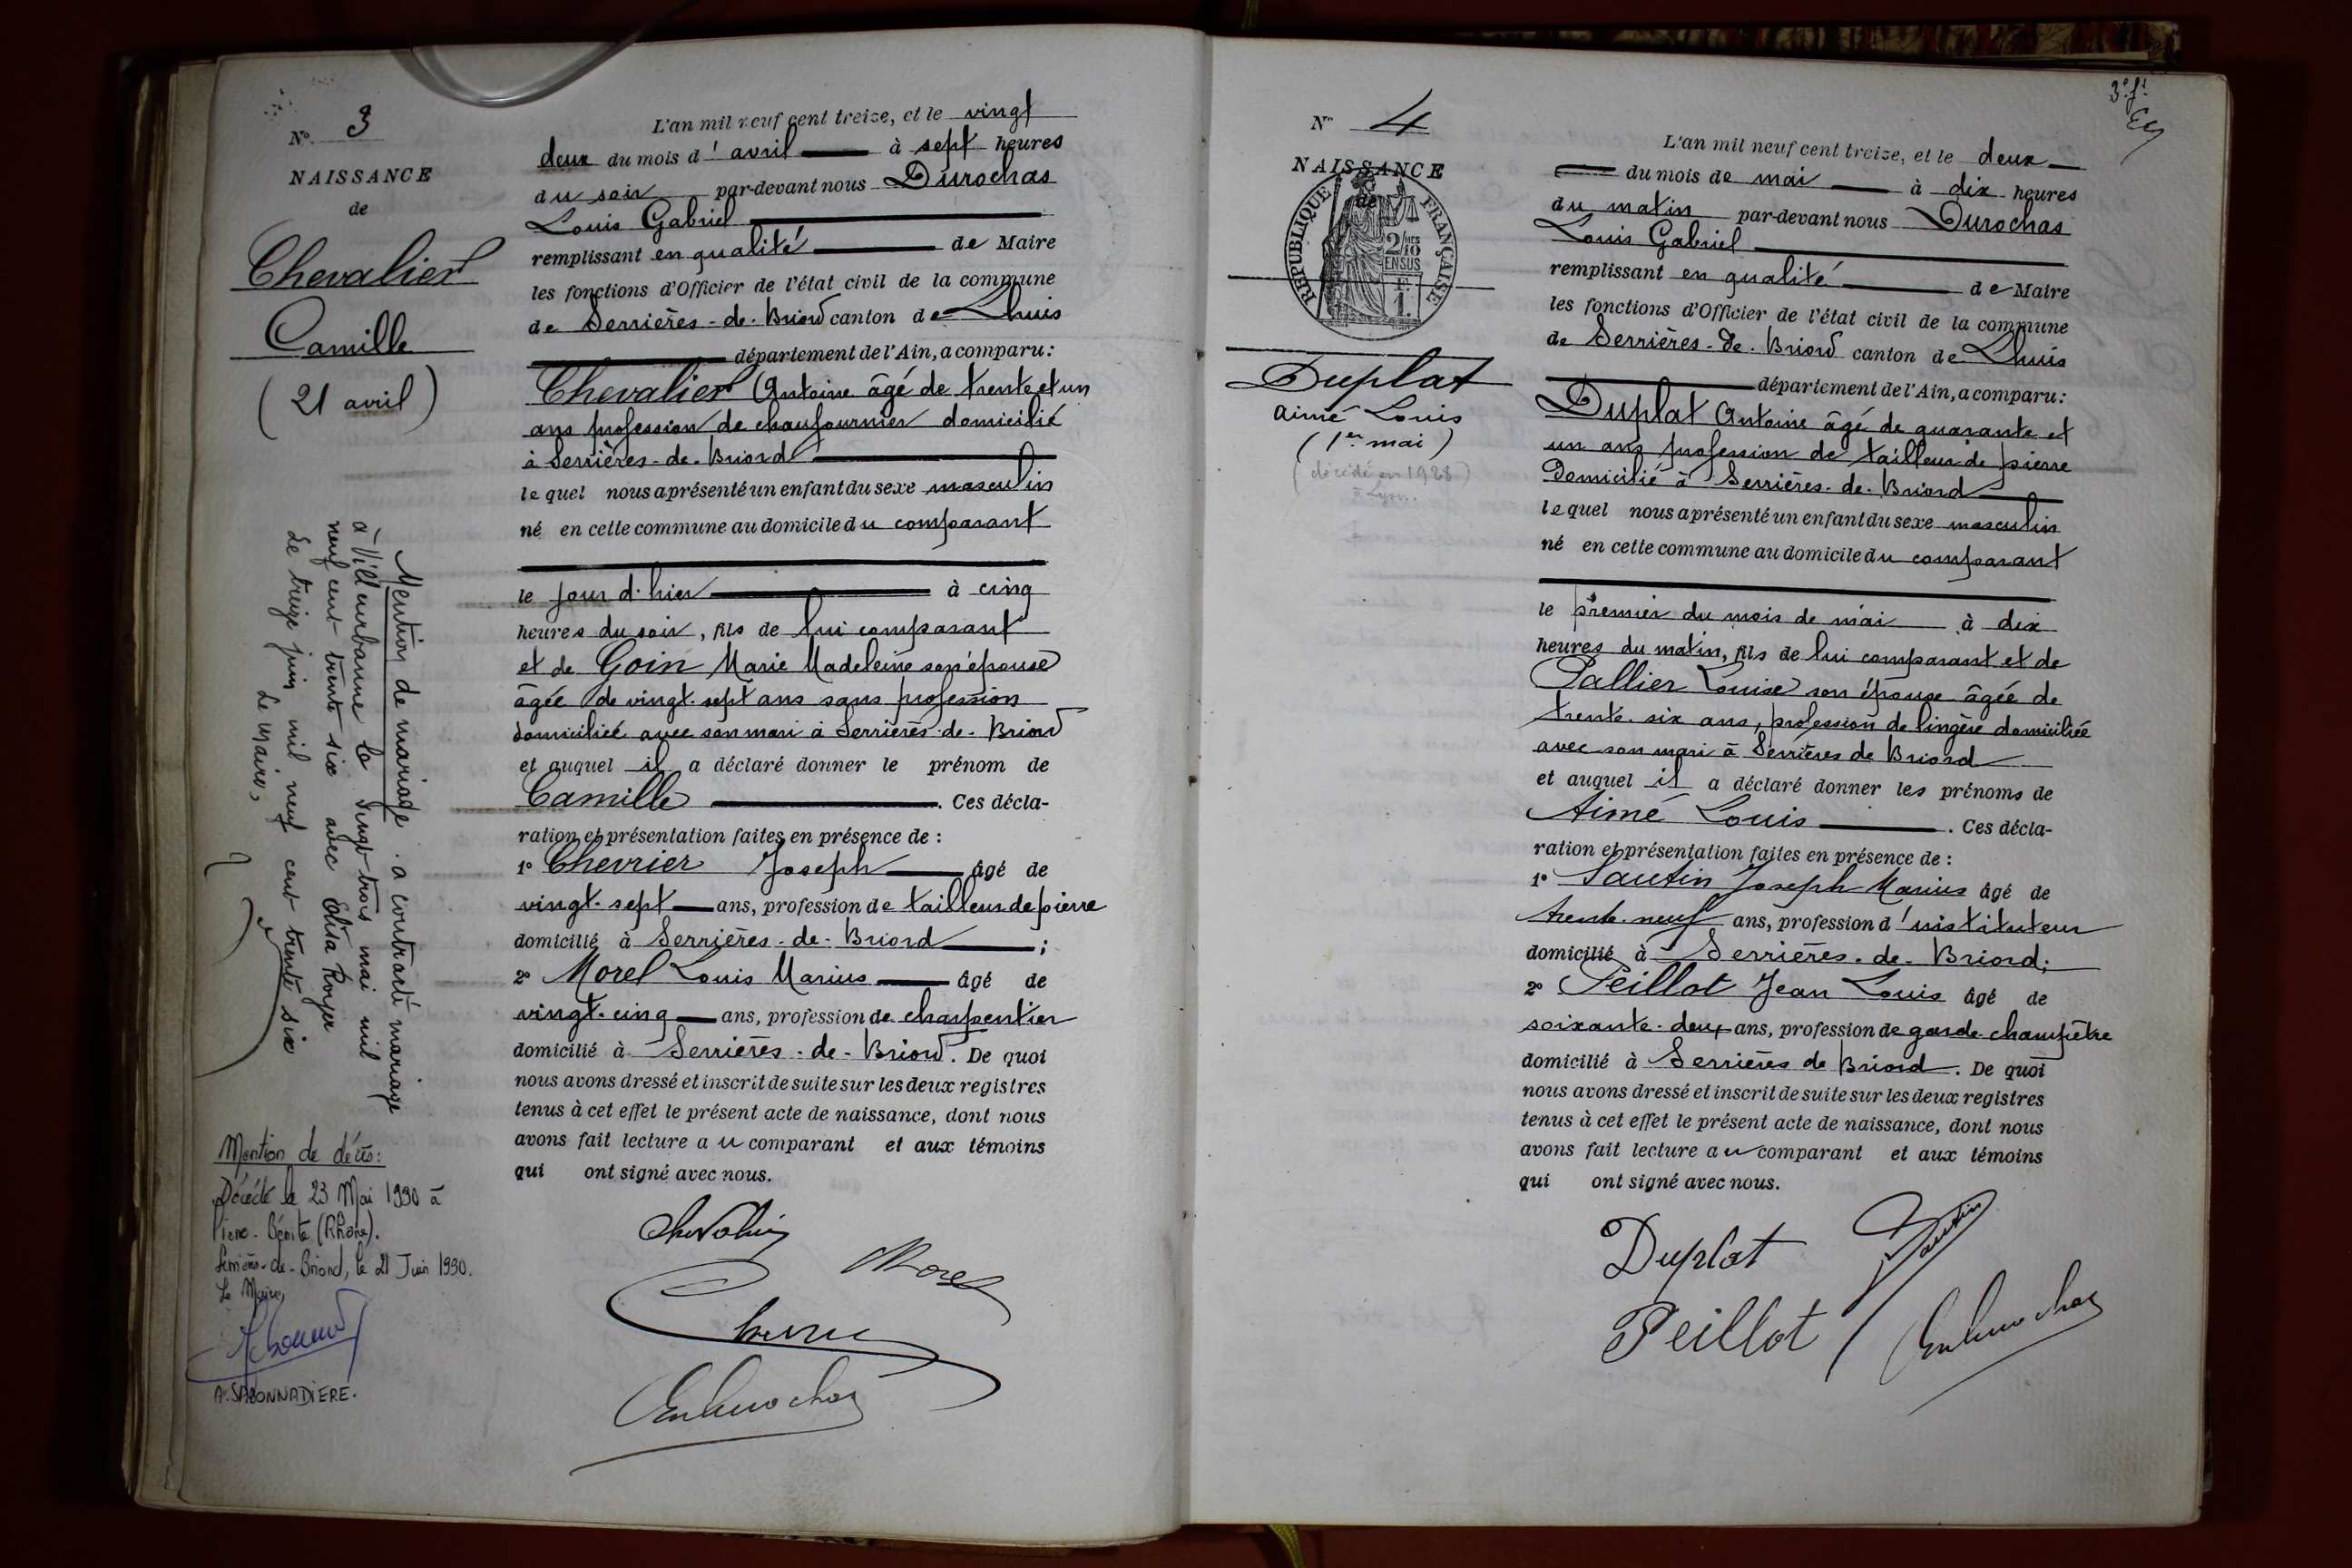 N° 3
NAISSANCE
de
Chevalier
Camille
(21 avril)
Mention de mariage. a contracté mariage
à Villeurbanne le vingt-trois mai mil
neuf cent trente six avec Elisa Royer
Le treize juin mil neuf cent trente six
Le Maire,
Mention de décès:
Décédé le 23 Mai 1990 à
Pierre-Bénite (Rhône).
Serrières-de-Briord, le 21 Juin 1990.
Le Maire,
A. SABONNADIERE.
L'an mil neuf cent treize, et le vingt
deux du mois d'avril à sept heures
du soir par-devant nous Durochas
Louis Gabriel
remplissant en qualité de Maire
les fonctions d'Officier de l'état civil de la commune
de Serrières-de-Briord canton de Lhuis
département de l'Ain, a comparu:
Chevalier Antoine âgé de trente et un
ans profession de chaufournier domicilié
à Serrières-de-Briord
lequel nous a présenté un enfant du sexe masculin
né en cette commune au domicile du comparant
le jour d'hier à cinq
heures du soir, fils de lui comparant
et de Goin Marie Madeleine son épouse
âgée de vingt-sept ans sans profession
domiciliée avec son mari à Serrières-de-Briord
et auquel il a déclaré donner le prénom de
Camille. Ces décla-
ration et présentation faites en présence de :
1° Chevrier Joseph âgé de
vingt-sept ans, profession de tailleur de pierre
domicilié à Serrières-de-Briord ;
2° Morel Louis Marius âgé de
vingt-cinq ans, profession de charpentier
domicilié à Serrières-de-Briord. De quoi
nous avons dressé et inscrit de suite sur les deux registres
tenus à cet effet le présent acte de naissance, dont nous
avons fait lecture au comparant et aux témoins
qui ont signé avec nous.
Chevalier
Morel
3e ft
N° 4
NAISSANCE
de
REPUBLIQUE FRANÇAISE
2/10
EN SUS
1 F.
Duplat
Aimé Louis
(1er mai)
(décédé en 1928)
à Lyon.
L'an mil neuf cent treize, et le deux
du mois de mai à dix heures
du matin par-devant nous Durochas
Louis Gabriel
remplissant en qualité de Maire
les fonctions d'Officier de l'état civil de la commune
de Serrières-de-Briord canton de Lhuis
département de l'Ain, a comparu:
Duplat Antoine âgé de quarante et
un ans profession de tailleur de pierre
Domicilié à Serrières-de-Briord
lequel nous a présenté un enfant du sexe masculin
né en cette commune au domicile du comparant
le premier du mois de mai à dix
heures du matin, fils de lui comparant et de
Pallier Louise son épouse âgée de
trente-six ans, profession de lingère domiciliée
avec son mari à Serrières de Briord
et auquel il a déclaré donner les prénoms de
Aimé Louis. Ces décla-
ration et présentation faites en présence de :
1° Sautin Joseph Marius âgé de
trente-neuf ans, profession d'instituteur
domicilié à Serrières-de-Briord;
2° Peillot Jean Louis âgé de
soixante-deux ans, profession de garde-champêtre
domicilié à Serrières de Briord. De quoi
nous avons dressé et inscrit de suite sur les deux registres
tenus à cet effet le présent acte de naissance, dont nous
avons fait lecture au comparant et aux témoins
qui ont signé avec nous.
Duplat
Sautin
Peillot